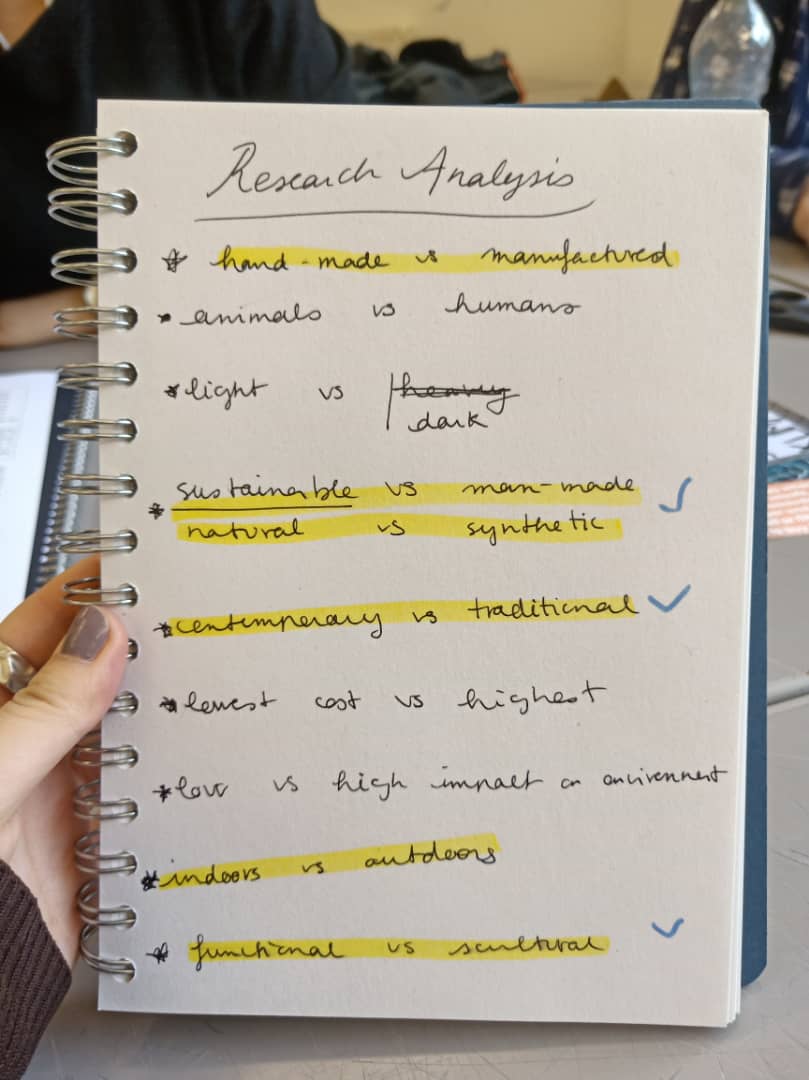 Research Analysis
* hand-made vs manufactured
* animals vs humans
* light vs heavy
dark
* sustainable vs man-made
natural vs synthetic
* contemporary vs traditional
* lowest cost vs highest
* low vs high impact on environment
* indoors vs outdoors
* functional vs scultural